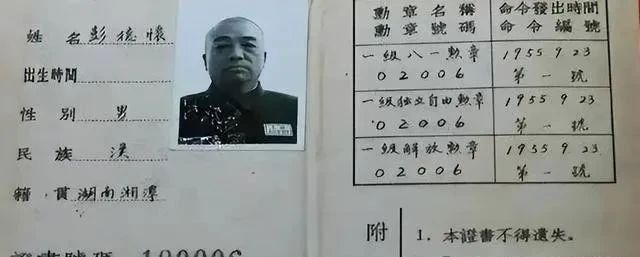 姓名彭德懷
出生時間
性别 男
民族 漢
籍貫湖南湘潭
勳章名稱
勳章號碼
命令發出時間
命令編號
一級八一勳章
02006
1955 9 23
第一號
一級獨立自由勳章
02006
1955 9 23
第一號
一級解放勳章
02006
1955 9 23
第一號
附
1. 本證書不得遺失。